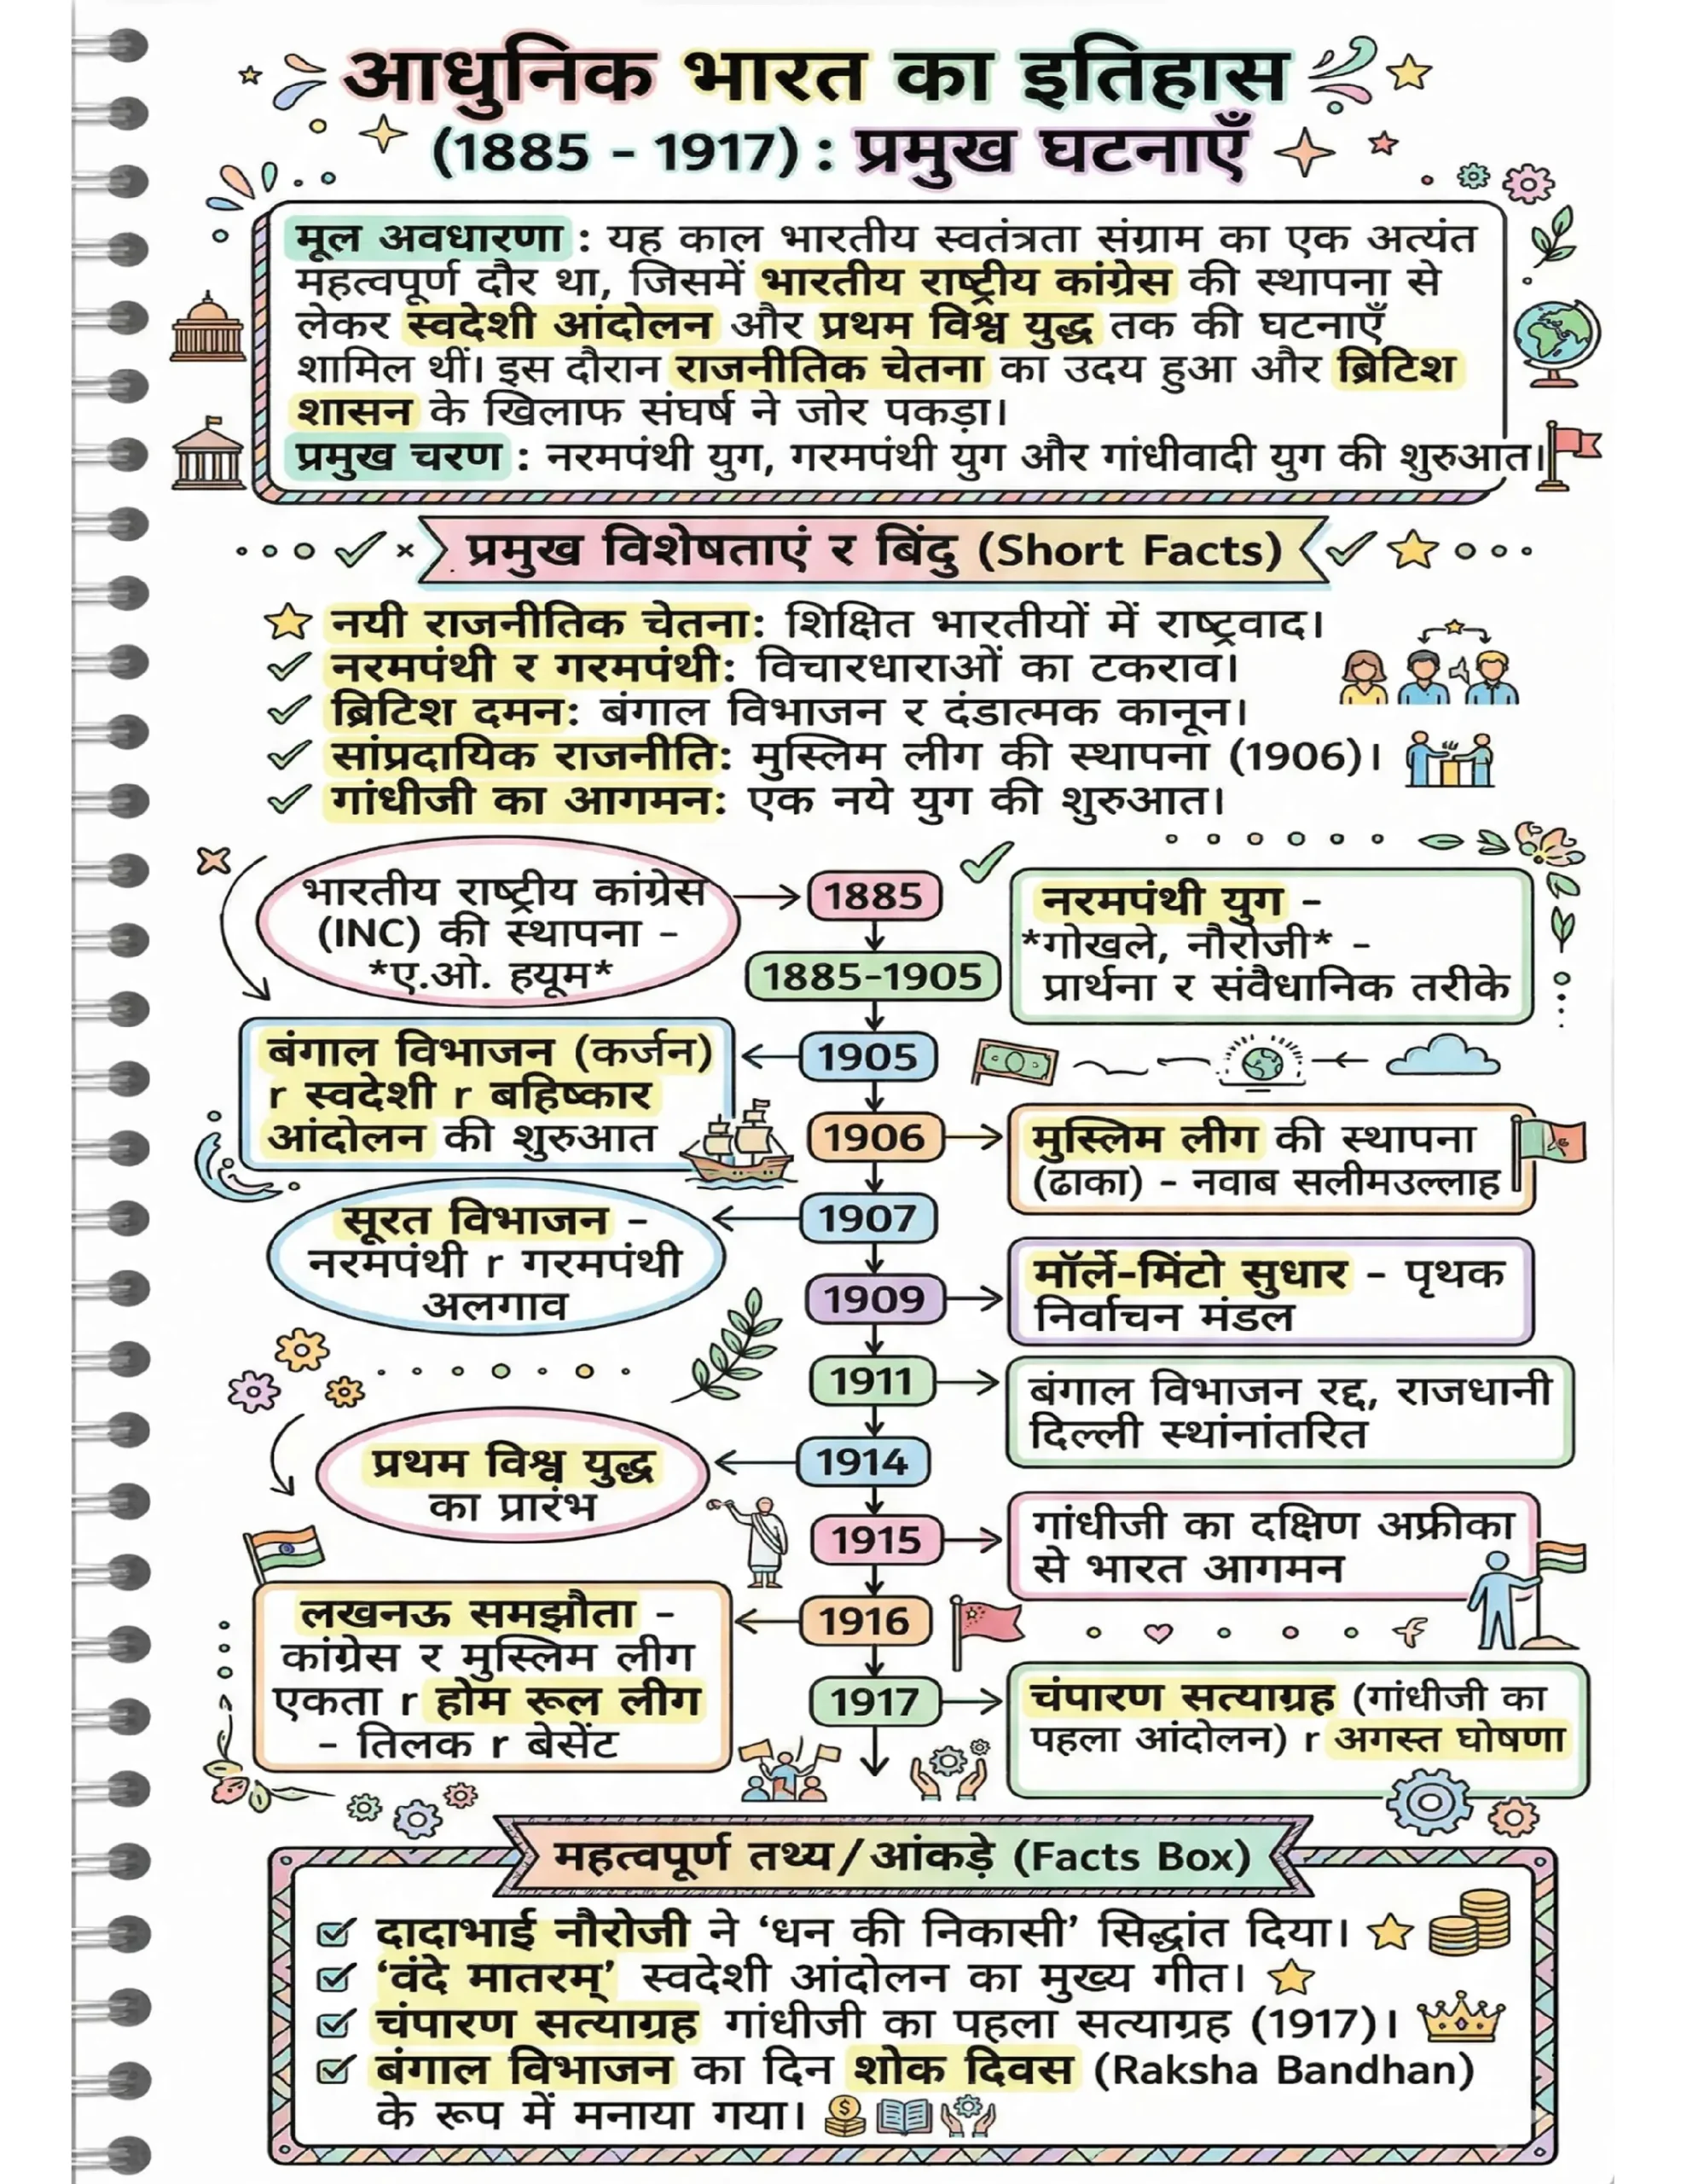 आधुनिक भारत का इतिहास
(1885 - 1917) : प्रमुख घटनाएँ
मूल अवधारणा : यह काल भारतीय स्वतंत्रता संग्राम का एक अत्यंत
महत्वपूर्ण दौर था, जिसमें भारतीय राष्ट्रीय कांग्रेस की स्थापना से
लेकर स्वदेशी आंदोलन और प्रथम विश्व युद्ध तक की घटनाएँ
शामिल थीं। इस दौरान राजनीतिक चेतना का उदय हुआ और ब्रिटिश
शासन के खिलाफ संघर्ष ने जोर पकड़ा।
प्रमुख चरण : नरमपंथी युग, गरमपंथी युग और गांधीवादी युग की शुरुआत।
प्रमुख विशेषताएं र बिंदु (Short Facts)
नयी राजनीतिक चेतना: शिक्षित भारतीयों में राष्ट्रवाद।
नरमपंथी र गरमपंथी: विचारधाराओं का टकराव।
ब्रिटिश दमन: बंगाल विभाजन र दंडात्मक कानून।
सांप्रदायिक राजनीति: मुस्लिम लीग की स्थापना (1906)।
गांधीजी का आगमन: एक नये युग की शुरुआत।
भारतीय राष्ट्रीय कांग्रेस
(INC) की स्थापना -
*ए.ओ. हयूम*
1885
1885-1905
नरमपंथी युग -
*गोखले, नौरोजी* -
प्रार्थना र संवैधानिक तरीके
बंगाल विभाजन (कर्जन)
r स्वदेशी r बहिष्कार
आंदोलन की शुरुआत
1905
1906
मुस्लिम लीग की स्थापना
(ढाका) - नवाब सलीमउल्लाह
सूरत विभाजन -
नरमपंथी r गरमपंथी
अलगाव
1907
1909
मॉर्ले-मिंटो सुधार - पृथक
निर्वाचन मंडल
1911
बंगाल विभाजन रद्द, राजधानी
दिल्ली स्थांनांतरित
प्रथम विश्व युद्ध
का प्रारंभ
1914
1915
गांधीजी का दक्षिण अफ्रीका
से भारत आगमन
लखनऊ समझौता -
कांग्रेस र मुस्लिम लीग
एकता r होम रूल लीग
- तिलक r बेसेंट
1916
1917
चंपारण सत्याग्रह (गांधीजी का
पहला आंदोलन) r अगस्त घोषणा
महत्वपूर्ण तथ्य/आंकड़े (Facts Box)
दादाभाई नौरोजी ने ‘धन की निकासी’ सिद्धांत दिया।
‘वंदे मातरम्’ स्वदेशी आंदोलन का मुख्य गीत।
चंपारण सत्याग्रह गांधीजी का पहला सत्याग्रह (1917)।
बंगाल विभाजन का दिन शोक दिवस (Raksha Bandhan)
के रूप में मनाया गया।